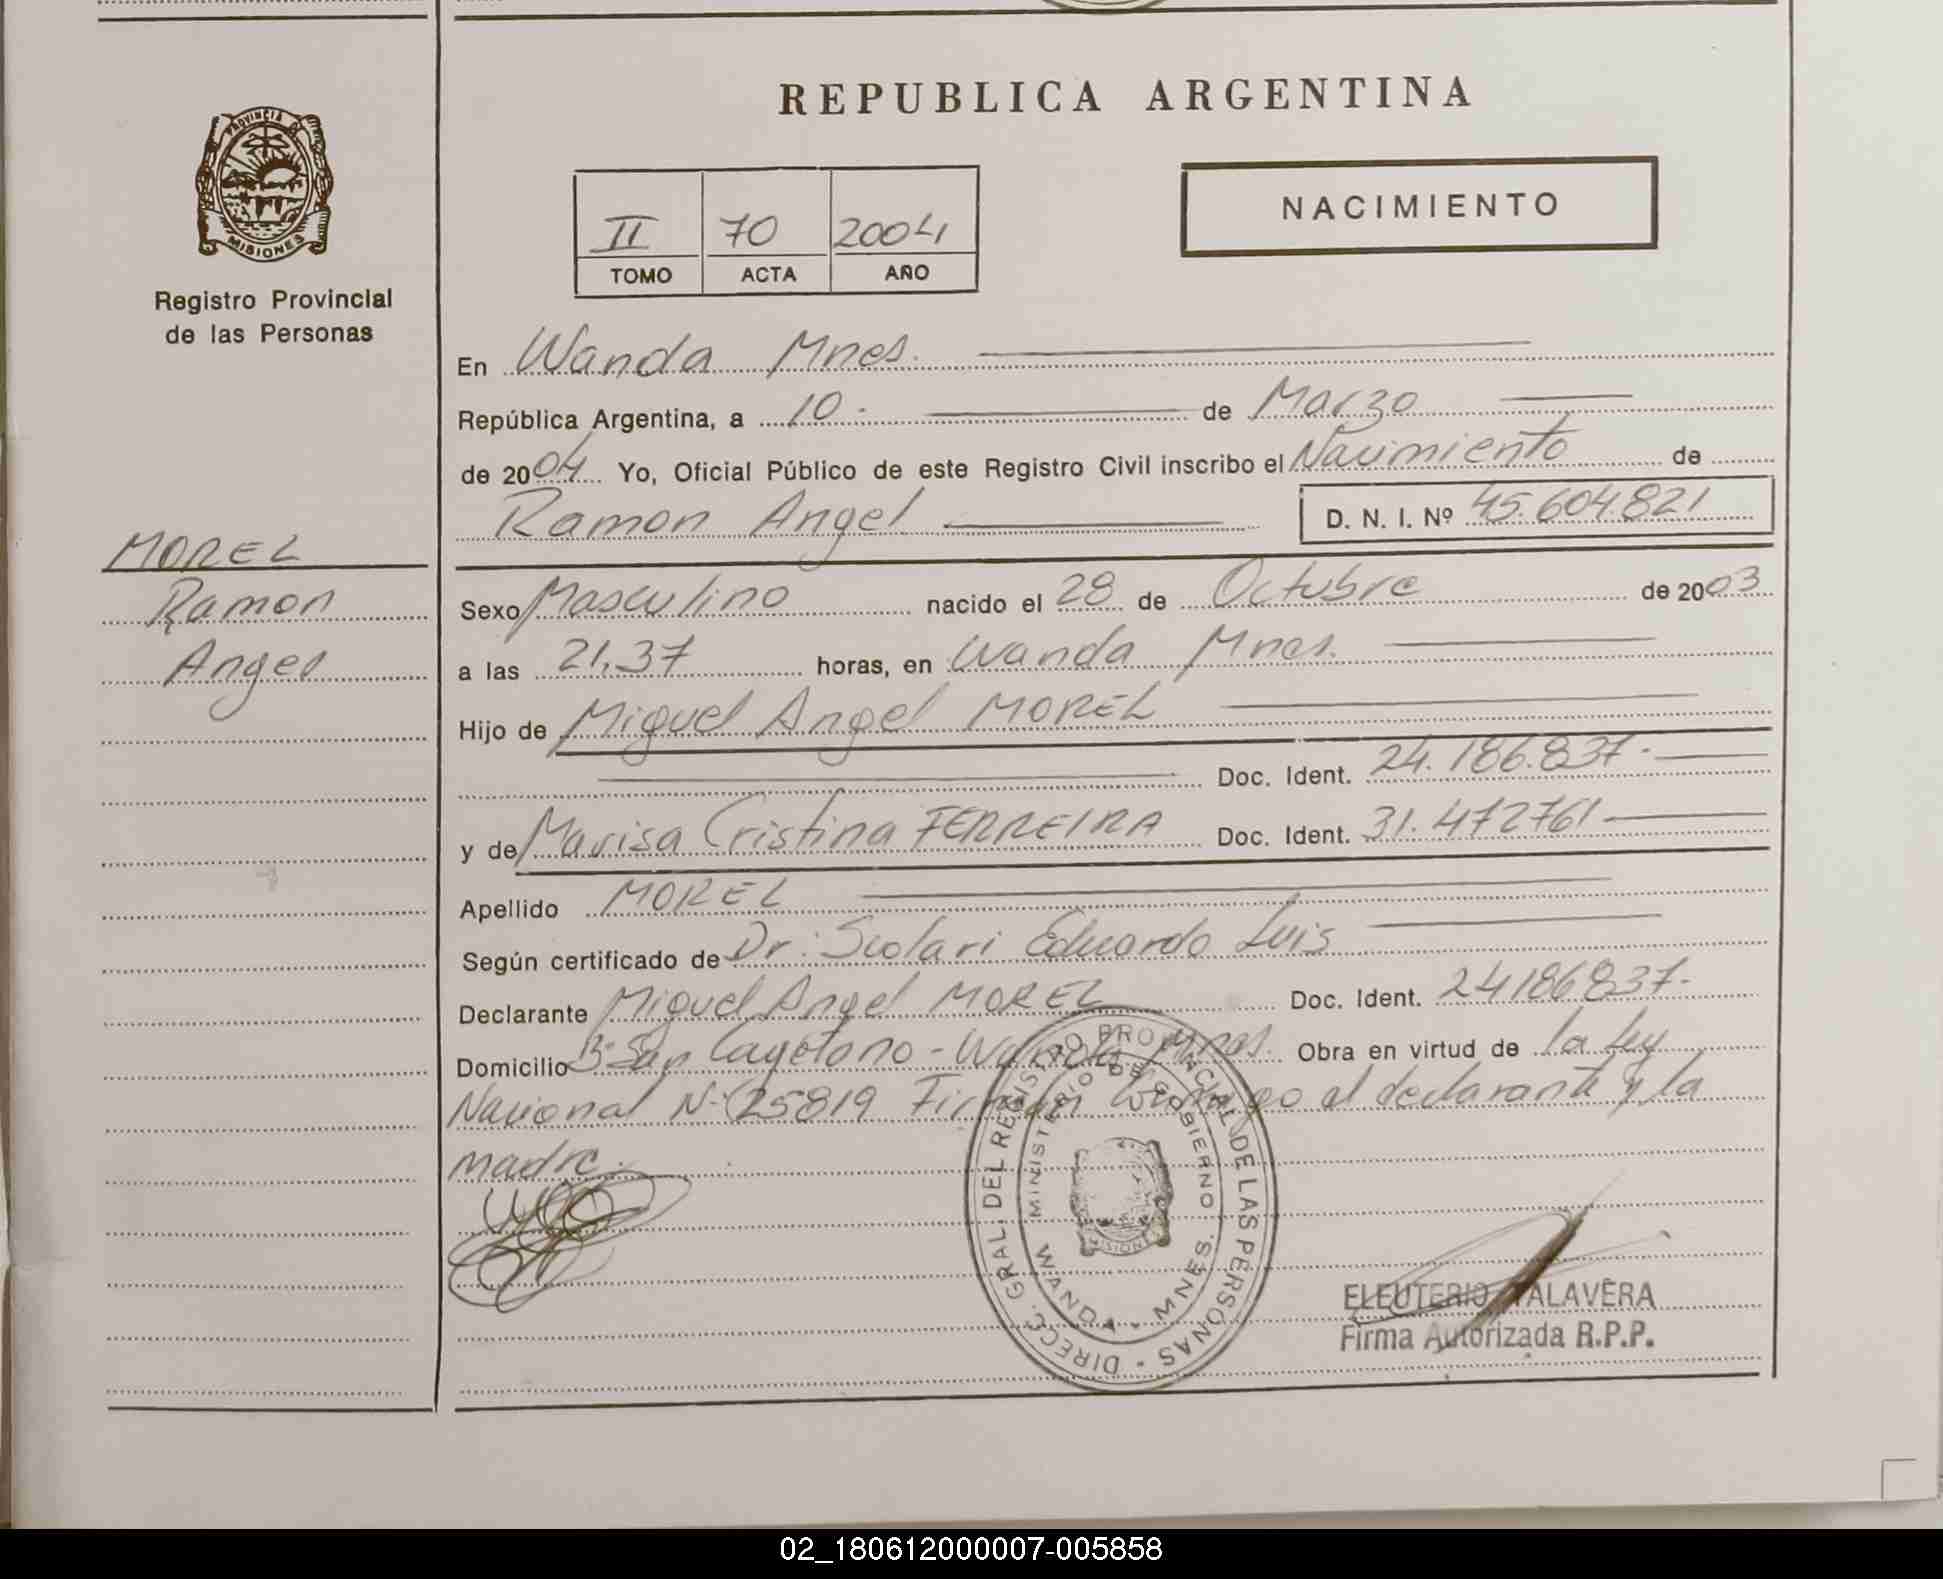 REPUBLICA ARGENTINA
PROVINCIA DE
MISIONES
Registro Provincial
de las Personas
II 70 2004
TOMO ACTA AÑO
NACIMIENTO
En Wanda Mnes.
República Argentina, a 10. de Marzo
de 2004 Yo, Oficial Público de este Registro Civil inscribo el Nacimiento de
Ramon Angel D. N. I. Nº 45.604.821
MOREL
Ramon
Angel
Sexo Masculino nacido el 28 de Octubre de 2003
a las 21,37 horas, en Wanda Mnes.
Hijo de Miguel Angel MOREL
Doc. Ident. 24.186.837.
y de Marisa Cristina FERREIRA Doc. Ident. 31.472761
Apellido MOREL
Según certificado de Dr: Scolari Eduardo Luis
Declarante Miguel Angel MOREL Doc. Ident. 24186837.
Domicilio Bº San Cayetano - Wanda Mnes. Obra en virtud de la Ley
Nacional Nº 25819 Firman conmigo el declarante y la
madre.
DIRECC. GRAL. DEL REGISTRO PROVINCIAL DE LAS PERSONAS
MINISTERIO DE GOBIERNO
WANDA - MNES.
MISIONES
ELEUTERIO TALAVERA
Firma Autorizada R.P.P.
02_180612000007-005858